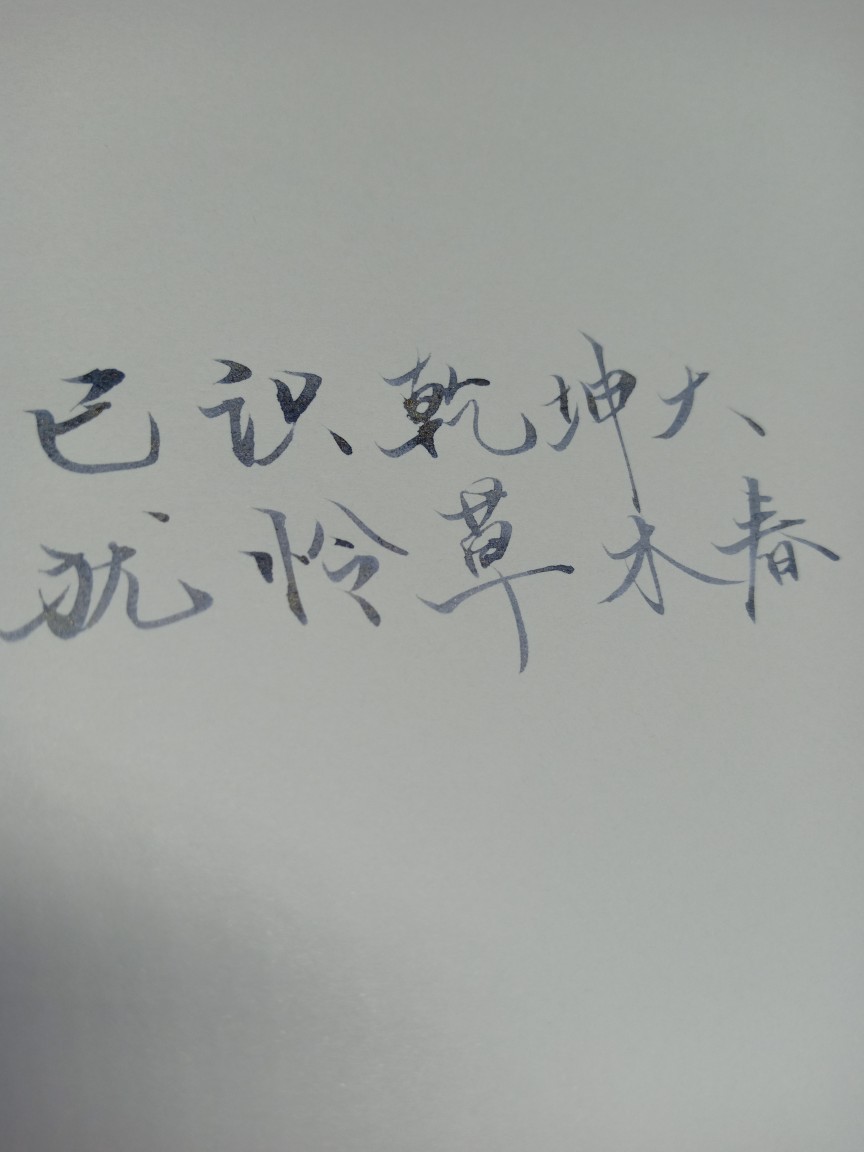 已识乾坤大
犹怜草木春